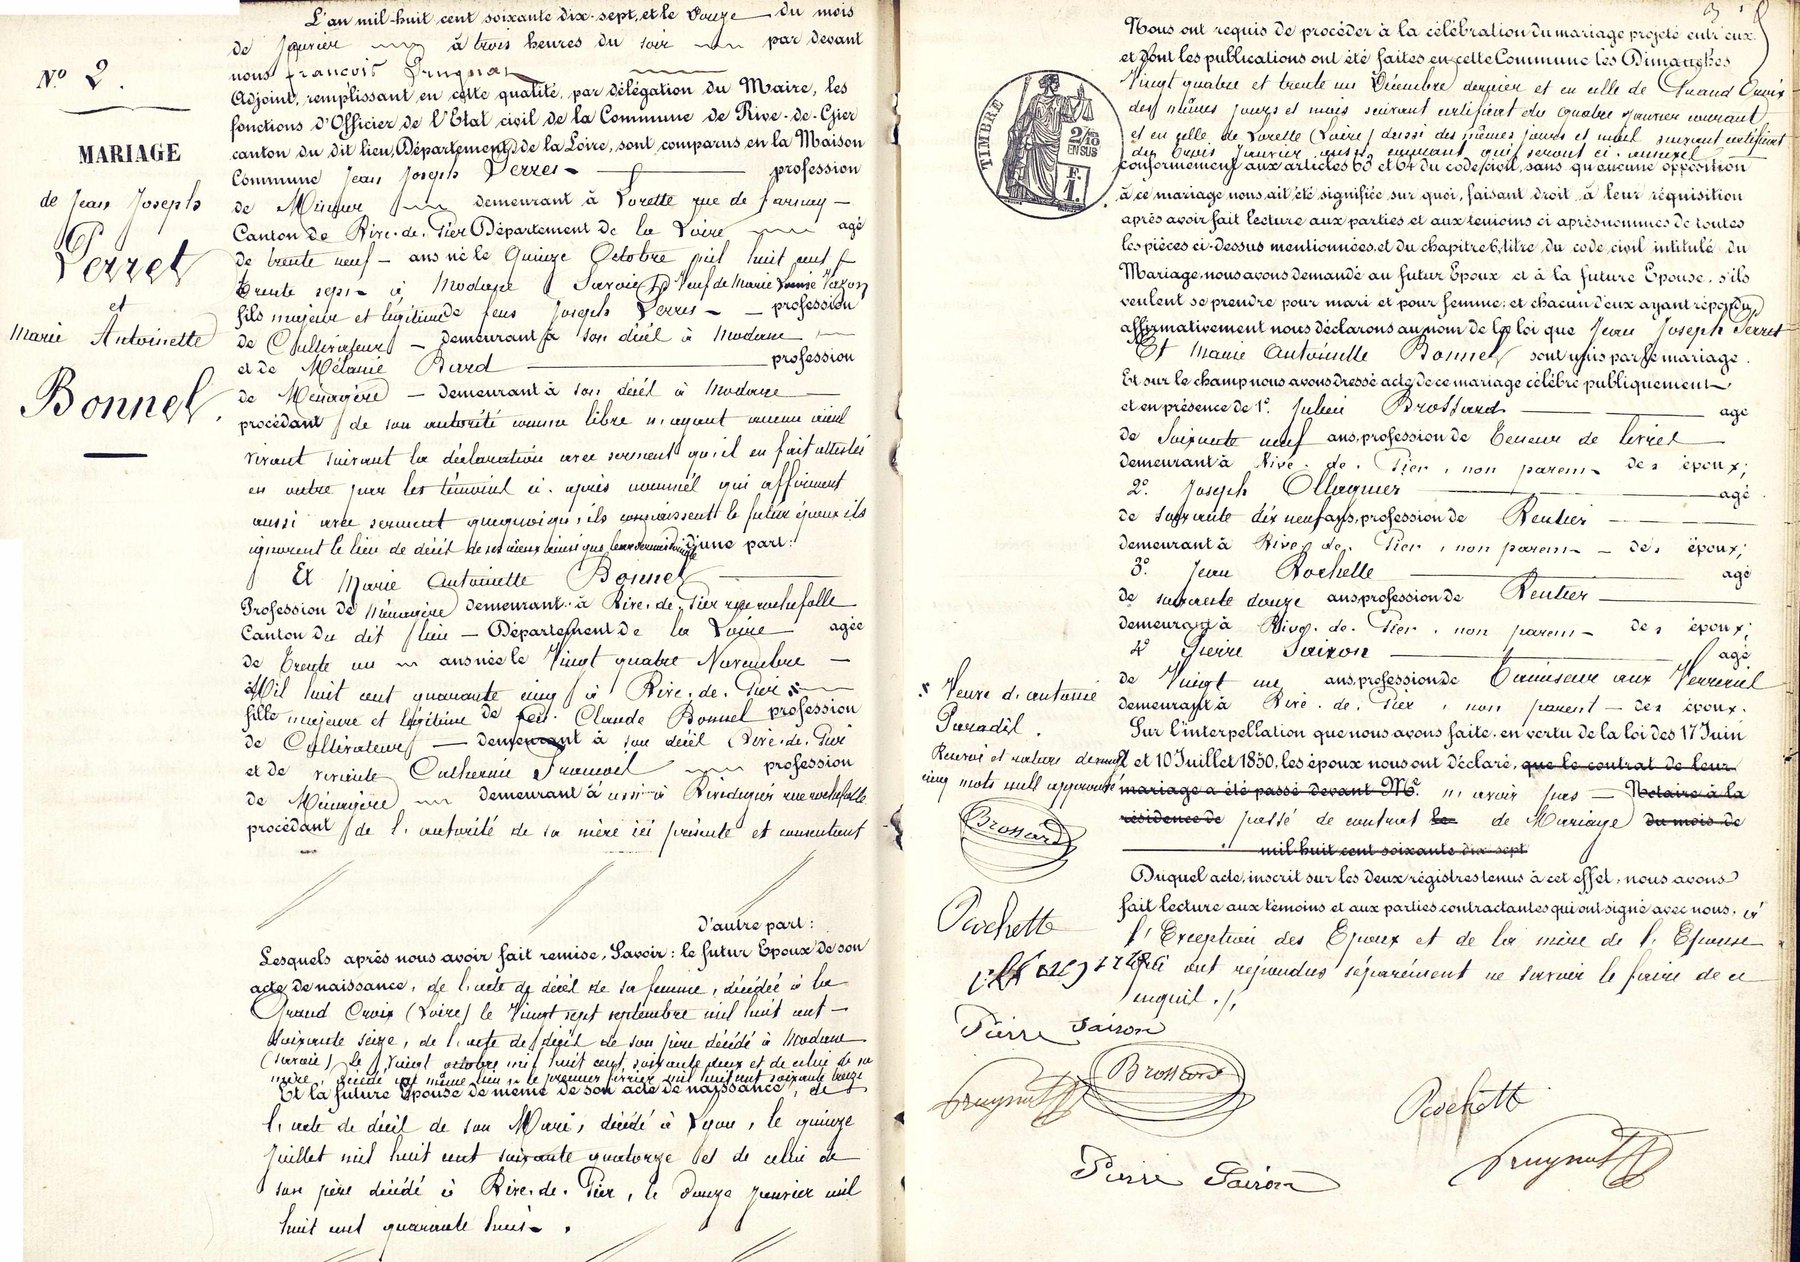 N° 2.
MARIAGE
de Jean Joseph
Perret
et
Marie Antoinette
Bonnel
L'an mil-huit cent soixante dix-sept, et le Douze du mois
de Janvier à trois heures du soir par devant
nous François Prugnat
Adjoint, remplissant en cette qualité, par délégation du Maire, les
fonctions d'Officier de l'Etat civil de la Commune de Rive-de-Gier
canton du dit lieu, Département de la Loire, sont comparus en la Maison
Commune Jean Joseph Perret profession
de Mineur demeurant à Lorette rue de farnay
Canton de Rive-de-Gier Département de la Loire agé
de trente neuf ans né le Quinze Octobre mil huit cent
trente sept à Modane (Savoie) Veuf de Marie Louise
fils majeur et légitime de feus Joseph Perret profession
de Cultivateur demeurant à son décès à Modane
et de Mélanie Bard profession
de Ménagère demeurant à son décès à Modane
procédant de son autorité comme libre n'ayant aucun aïeul
vivant suivant la déclaration avec serment qu'il en fait attestée
en outre par les témoins ci-après nommés qui affirment
aussi avec serment que quoiqu'ils connaissent le futur époux ils
ignorent le lieu de décès de ses aïeux ainsi que leur dernier domicile d'une part:
Et Marie Antoinette Bonnel
Profession de Ménagère demeurant à Rive-de-Gier rue rochefolle
Canton du dit lieu Département de la Loire agée
de trente un ans née le Vingt quatre Novembre
Mil huit cent quarante cinq à Rive-de-Gier
fille majeure et légitime de feu Claude Bonnel profession
de Cultivateur demeurant à son décès Rive-de-Gier
et de vivante Catherine profession
de Ménagère demeurant à aussi à Rive de gier rue rochefolle
procédant de l'autorité de sa mère ici présente et consentant
D'autre part:
Lesquels après nous avoir fait remise, Savoir: le futur Epoux de son
acte de naissance, de l'acte de décès de sa femme, décédée à la
Grand Croix (Loire) le Vingt sept septembre mil huit cent
soixante seize, de l'acte de décès de son père décédé à Modane
(Savoie) le Vingt octobre mil huit cent soixante deux et de celui de sa
mère, décédée au même lieu le premier février mil huit cent soixante treize
Et la future Epouse de même de son acte de naissance, de
l'acte de décès de son Mari, décédé à Lyon, le quinze
Juillet mil huit cent soixante quatorze et de celui de
son père décédé à Rive-de-Gier, le Douze Janvier mil
huit cent quarante huit.
Nous ont requis de procéder à la célébration du mariage projeté entr'eux
et dont les publications ont été faites en cette Commune les Dimanches
Vingt quatre et trente un Décembre dernier et en celle de Grand Croix
des mêmes jours et mois suivant certificat du quatre Janvier courant
et en celle de Lorette (Loire) aussi des mêmes jours et mois suivant certificat
du trois Janvier aussi courant qui seront ci-annexés
conformément aux articles 63 et 64 du code civil, sans qu'aucune opposition
à ce mariage nous ait été signifiée sur quoi, faisant droit à leur réquisition
après avoir fait lecture aux parties et aux temoins ci après nommés de toutes
les pièces ci-dessus mentionnées, et du chapitre 6, titre du code civil intitulé du
Mariage, nous avons demandé au futur Epoux et à la future Epouse, s'ils
veulent se prendre pour mari et pour femme; et chacun d'eux ayant répondu
affirmativement nous déclarons au nom de la loi que Jean Joseph Perret
Et Marie Antoinette Bonnel sont unis par le mariage.
Et sur le champ nous avons dressé acte de ce mariage célébré publiquement
et en présence de 1°. Julien Brossard agé
de Soixante neuf ans, profession de Teneur de livres
demeurant à Rive-de-Gier, non parent des époux;
2°. Joseph Ollagnier agé
de soixante dix neuf ans, profession de Rentier
demeurant à Rive-de-Gier, non parent des époux;
3°. Jean Rochette agé
de soixante douze ans, profession de Rentier
demeurant à Rive-de-Gier, non parent des époux;
4° Pierre Saison agé
de Vingt un ans, profession de Tamiseur aux Verreries
demeurant à Rive-de-Gier, non parent des époux.
Sur l'interpellation que nous avons faite, en vertu de la loi des 17 Juin
et 10 Juillet 1850, les époux nous ont déclaré, que le contrat de leur
mariage a été passé devant Me. n'avoir pas Notaire à la
résidence de passé de contrat le de Mariage du mois de
mil-huit cent soixante dix sept
Duquel acte, inscrit sur les deux régistres tenus à cet effet, nous avons
fait lecture aux témoins et aux parties contractantes qui ont signé avec nous, à
l'Exception des Epoux et de la mère de l'Epouse
qui ont répondus séparément ne savoir le faire de ce
enquis.
TIMBRE
2/10
EN SUS
F.
1.
Veuve d'antoine
Paradis.
Renvoi et rature de
cinq mots nuls approuvés
Brossard
Rochette
Pierre Saison
Prugnat
Brossard
Rochette
Pierre Saison
Prugnat